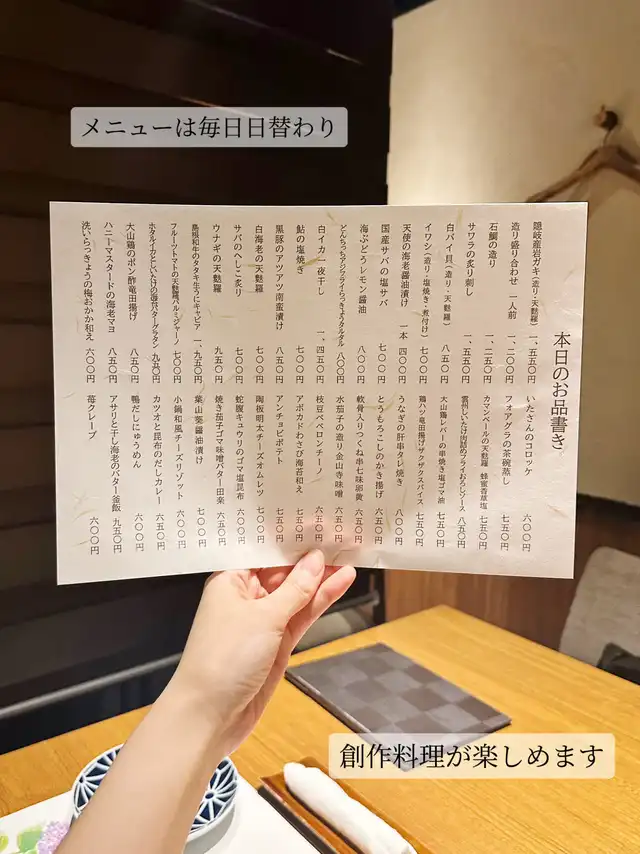 メニューは毎日日替わり
本日のお品書き
隠岐産岩ガキ（造り・天麩羅） 一、五五〇円
造り盛り合わせ 一人前 一、二〇〇円
石鯛の造り 一、二五〇円
サワラの炙り刺し 一、五五〇円
白バイ貝（造り・天麩羅） 八五〇円
イワシ（造り・塩焼き・煮付け） 七〇〇円
天使の海老醤油漬け 一本 四〇〇円
国産サバの塩サバ 七〇〇円
海ぶどうレモン醤油 八〇〇円
どんちっちアジフライらっきょうタルタル 八〇〇円
白イカ一夜干し 一、四五〇円
鮎の塩焼き 七五〇円
黒豚のアツアツ南蛮漬け 八五〇円
白海老の天麩羅 七〇〇円
サバのへしこ炙り 七〇〇円
ウナギの天麩羅 九五〇円
島根和牛のタタキ生うにキャビア 一、九五〇円
フルーツトマトの天麩羅パルミジャーノ 七〇〇円
ホタルイカとしいたけの海苔バターグラタン 九五〇円
大山鶏のポン酢竜田揚げ 八五〇円
ハニーマスタードの海老マヨ 八五〇円
洗いらっきょうの梅おかか和え 六〇〇円
いたさんのコロッケ 六〇〇円
フォアグラの茶碗蒸し 七五〇円
カマンベールの天麩羅 蜂蜜香草塩 七五〇円
雲州しいたけ肉詰めフライおろしソース 八五〇円
大山鶏レバーの串焼き塩ゴマ油 七五〇円
鶏ハツ竜田揚げザクザクスパイス 七五〇円
うなぎの肝串タレ焼き 八〇〇円
とうもろこしのかき揚げ 六五〇円
軟骨入りつくね串七味卵黄 七五〇円
水茄子の造り金山寺味噌 六五〇円
枝豆ペペロンチーノ 六五〇円
アボカドわさび海苔和え 七五〇円
アンチョビポテト 七五〇円
陶板明太チーズオムレツ 七〇〇円
蛇腹キュウリのゴマ塩昆布 六〇〇円
焼き茄子ゴマ味噌バター田楽 六五〇円
葉山葵醤油漬け 七〇〇円
小鍋和風チーズリゾット 六五〇円
カツオと昆布のだしカレー 六五〇円
鴨だしにゅうめん 六〇〇円
アサリと干し海老のバター釜飯 九五〇円
苺クレープ 六〇〇円
創作料理が楽しめます